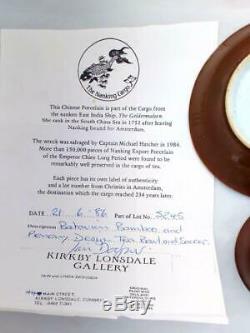 The Nanking Cargo
This Chinese Porcelain is part of the Cargo from
the sunken East India Ship, The Geldermalsen
She sank in the South China Sea in 1752 after leaving
Nanking bound for Amsterdam.
The wreck was salvaged by Captain Michael Hatcher in 1984.
More than 150,000 pieces of Nanking Export Porcelain
of the Emperor Chien Lung Period were found to be
remarkably well preserved in the stern cargo areas.
Each piece has its own label of authenticity
and a lot number from Christies in Amsterdam,
the destination which the cargo reached 234 years later.
DATE 21. 6. 86 Part of Lot No. 5245
Description Batavian Bamboo and
Peony Design Tea Bowl and Saucer.
KIRKBY LONSDALE
GALLERY
MAIN STREET
KIRKBY LONSDALE, CUMBRIA